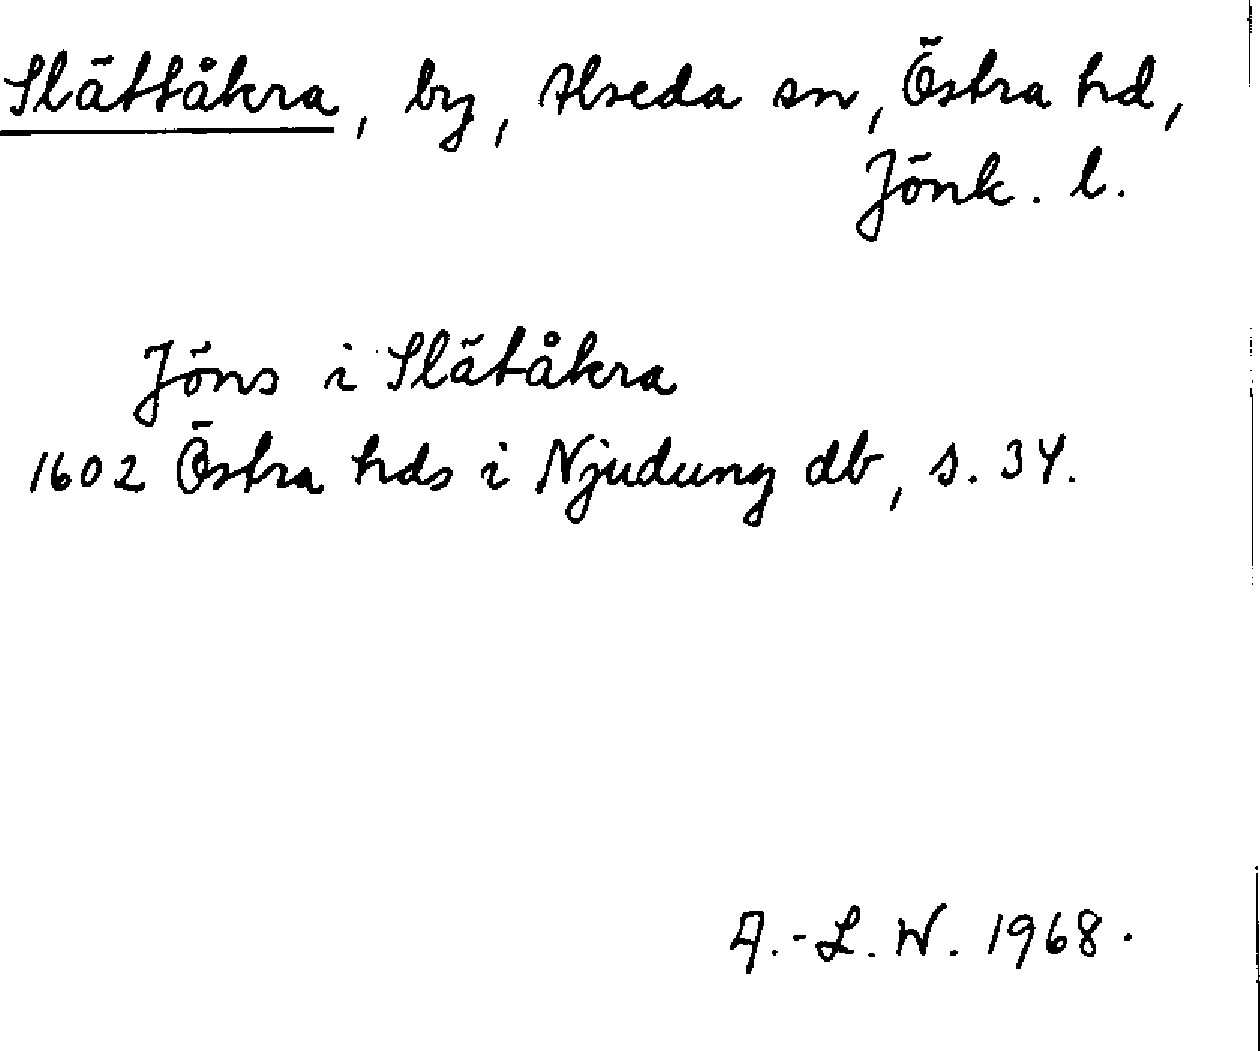 Slättåkra, by, Alseda sn, Östra hd,
Jönk. l.
Jöns i Slätåkra
1602 Östra hds i Njudung db, s. 34.
A.-L. W. 1968.